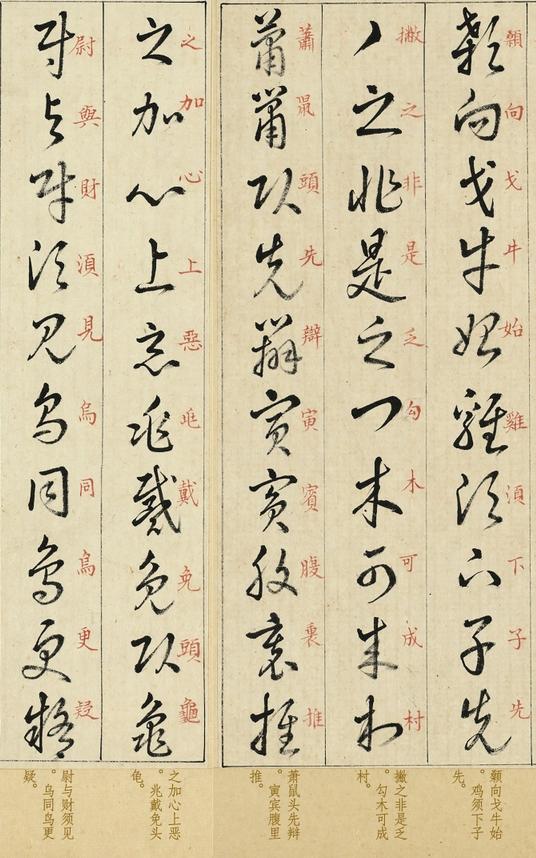 顙向戈牛始雞湏下子先
撇之非是乏勾木可成村
蕭鼠頭先辯寅賓腹裏推
之加心上惡兆戴免頭龜
尉與財湏見烏同鳥更疑
颡向戈牛始
。鸡须下子
先。
撇之非是乏
。勾木可成
村。
萧鼠头先辩
。寅宾腹里
推。
之加心上恶
。兆戴免头
龟。
尉与财须见
。乌同鸟更
疑。